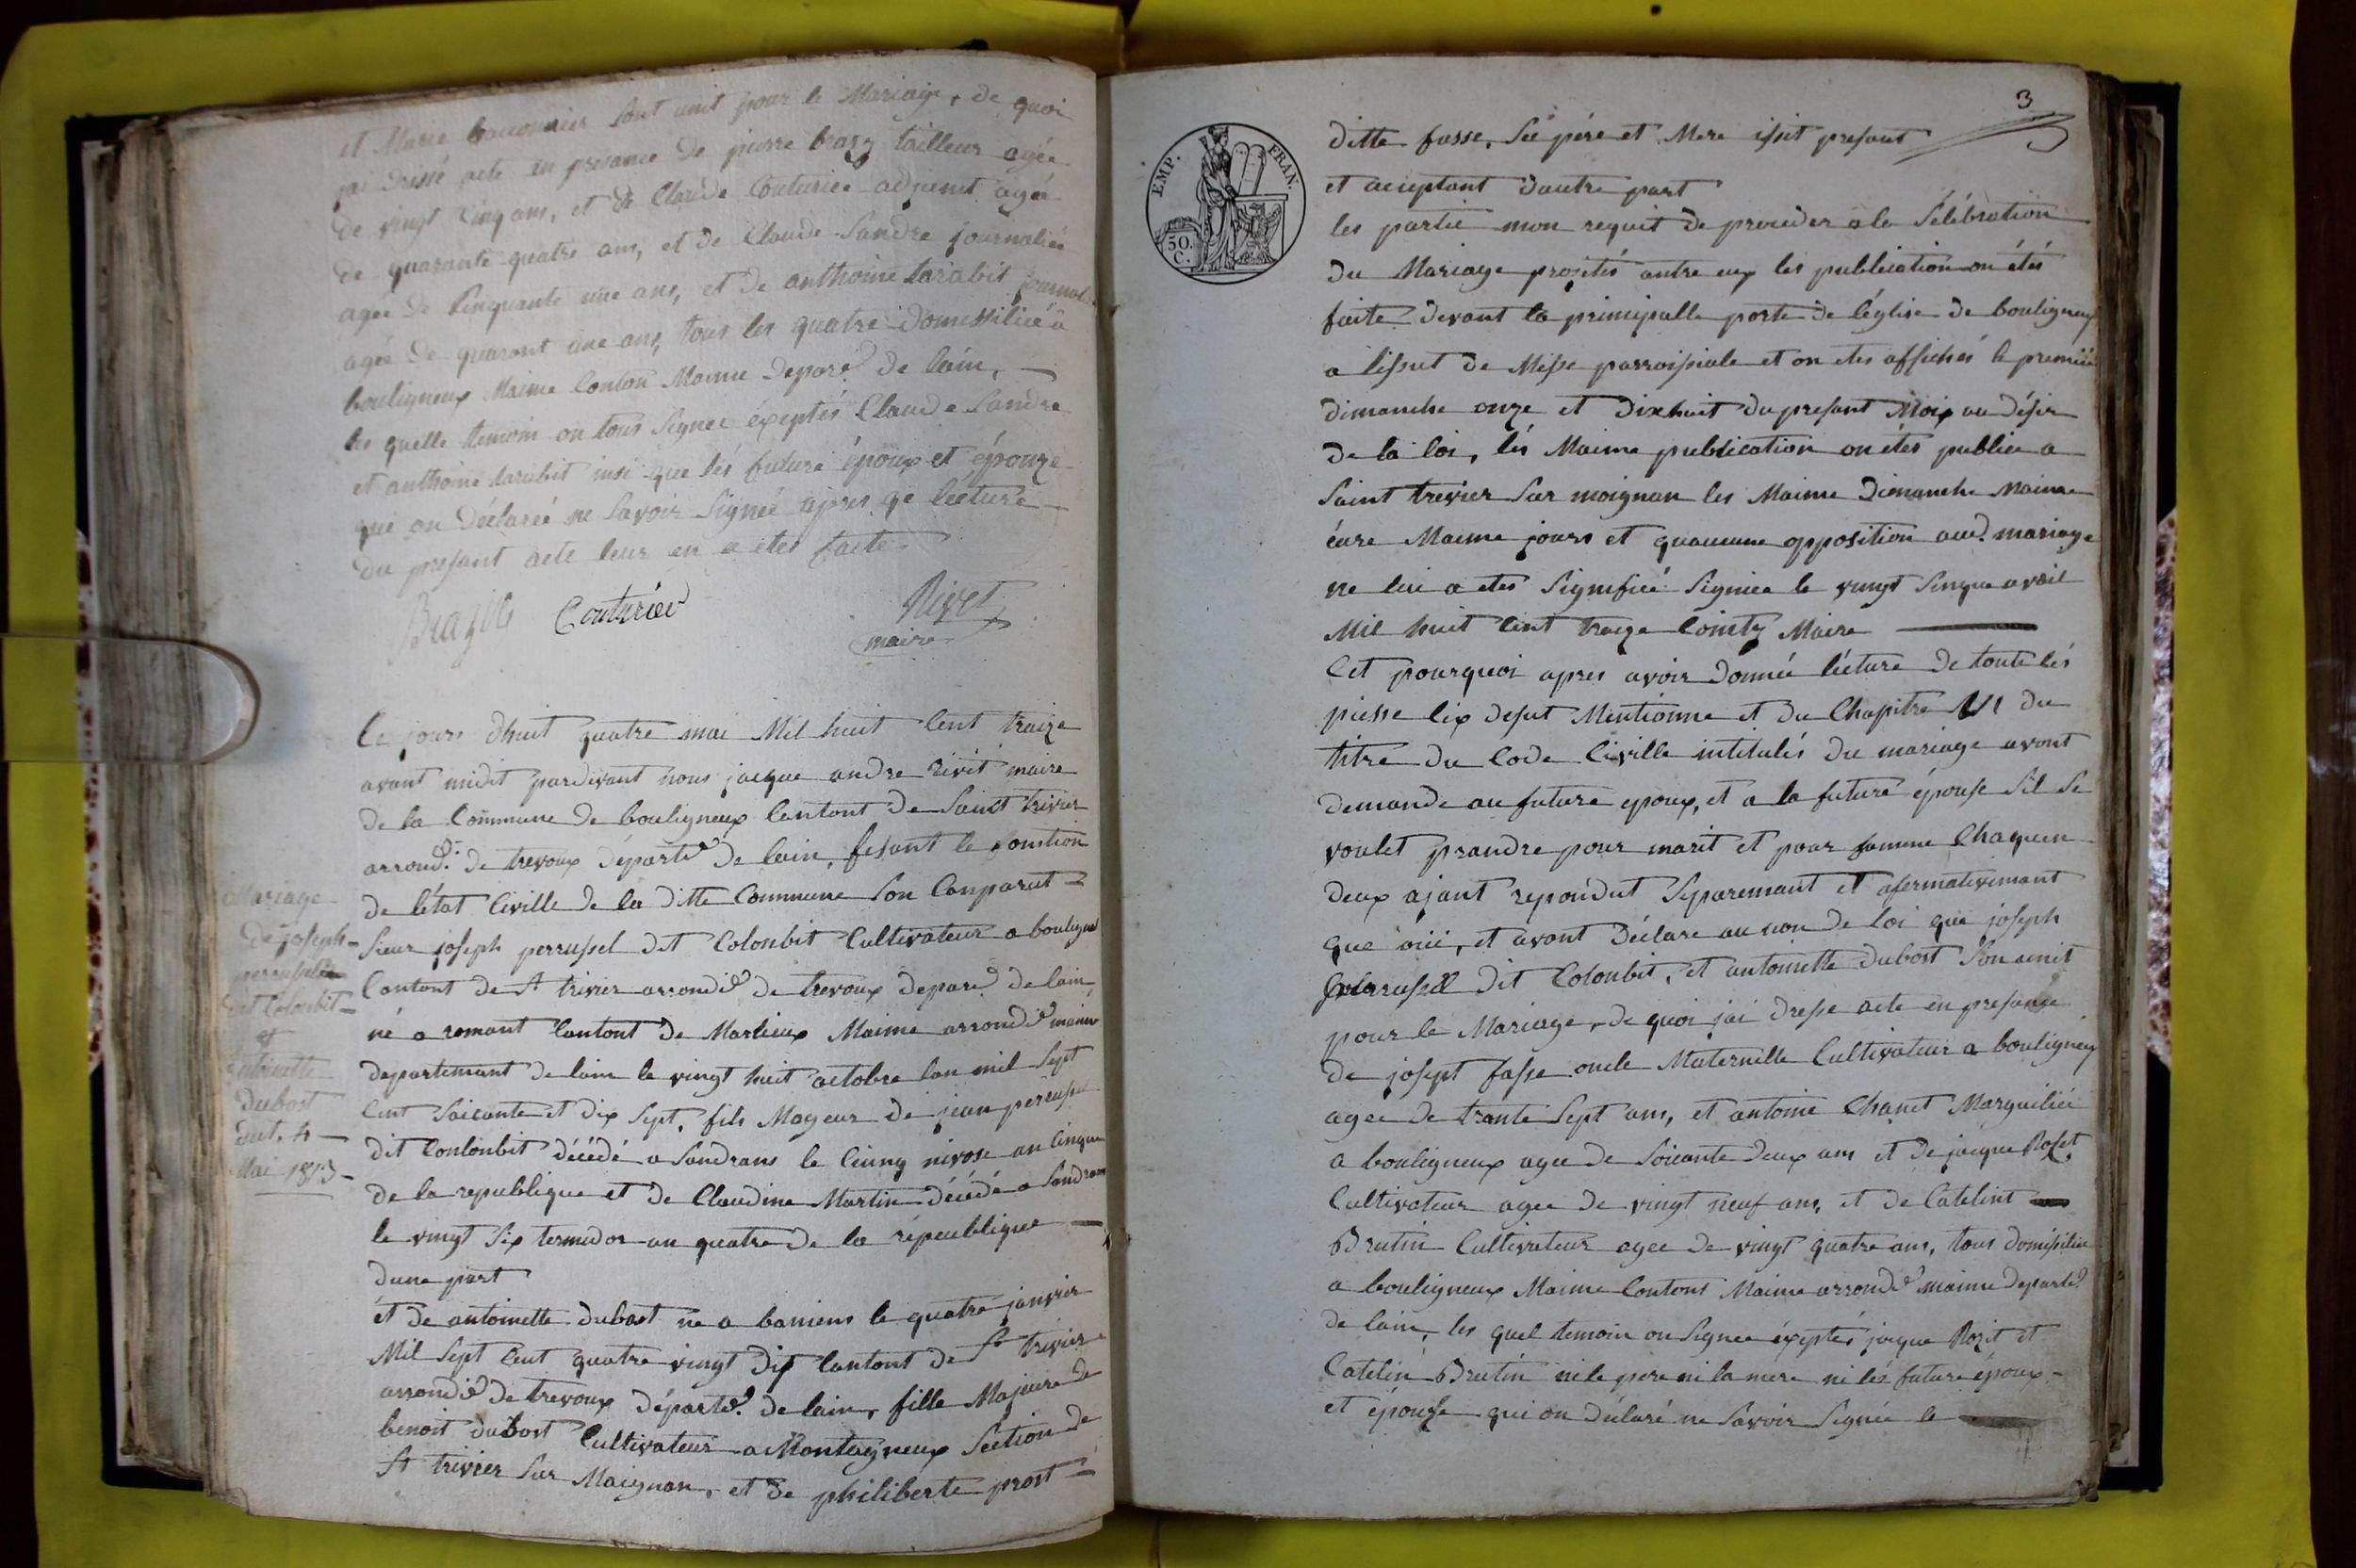 et Marie sont unit pour le Mariage, de quoi
jai dressé acte en presance de pierre brazy tailleur agée
de vingt cinq ans, et de Claude Couturier adjoint agée
de quarante quatre ans, et de Claude Sandre journaliée
agée de Cinquante une ans, et de anthoine tarabit journal
agée de quaront une ans, tous les quatre domissiliée a
bouligneux Maime Conton Maime depare de lain,
les quelle temoin on tous Signee éxeptés Claude Sandre
et anthoine tarabit insi que lés future époux et épouze
qui on déclarée ne Savoir Signée apres qe lecture
du presant acte leur en a etes faite
Couturier
Rivet
maire
Mariage
de joseph
perrussel
dit Colonbit
et
antoinette
dubost
dut. 4
Mai 1813
Ce jours dhuit quatre mai Mil huit Cent traize
avant midit pardevant nous jacque andre rivet maire
de la Commune de bouligneux Contont de Saint trivier
arrond.t de trevoux départe de lain, fesant le fonstion
de létat Civille de la ditte Commune Son Conparut
Sieur joseph perrussel dit Colonbit Cultivateur a bouligneux
Contont de St trivier arrondi de trevoux depare de lain,
né a romant Contont de Marlieux Maime arrondi maime
departemant de lain le vingt huit octobre lan mil Sept
Cent Soicante et dix Sept, fils Mageur de jean perrussel
dit Conlonbit décédé a Sandrans le Cinnq nivose an Cinque
de la republique et de Claudine Martin décédé a Sandrans
le vingt Six termidor an quatre de la république
dune part
et de antoinette dubost ne a baniens le quatre janvier
Mil Sept Cent quatre vingt dix Contont de St trivier
arrondi de trevoux départe. de lain, fille Majeure de
benoit dubost Cultivateur a Montagneux Section de
St trivier Sur Maignan, et de philiberte prost
3
EMP. FRAN.
50.
C.
ditte fasse, Sée pére et Mere issit presant
et acceptant dautre part
les partie mon requit de proceder a la Sélébration
du Mariage projetés antre eux les publication on étés
faite devant la principalle porte de léglise de bouligneux
a lissut de Messe parroissiale et on etes affichés le premiée
dimanche onze et dixhuit du presant Moix au désir
de la loi, lés Maime publication on étés publiee a
Saint trevier Sur moignan les Maime Dimanche Maime
éure Maime jours et quaucune opposition aud. mariage
ne lui a etes Signifiée Signiée le vingt Sinque avril
Mil huit Cent traize Maire
Cet pourquoi apres avoir donnée lécture de toute lés
piesse Cix desut Mentionne et du Chapitre VI du
titre du Code Civille intitulés du mariage avont
demande au future epoux, et a la future épouse Sil Se
voulet prandre pour marit et pour famme Chaquun
deux ajant repondut Séparemant et afermativemant
que oüi, et avont Déclare au non de loi que joseph
perrussel dit Colonbit, et antoinette dubost Son unit
pour le Mariage, de quoi jai dresse acte en presance
de josept fasse oncle Maternelle Cultivateur a bouligneux
agee de trante Sept ans, et antoine Chanet Marguilliée
a bouligneux agee de Soicante deux ans et de jacque Rozet
Cultivateur agee de vingt neuf ans, et de Catelint
Brutin Cultivateur agee de vingt quatre ans, tous domissilie
a bouligneux Maime Contont Maime arrondi maime departe
de lain, les quel temoin on Signee éxeptés jacque Rozit et
Catelin Brutin ni le pere ni la mere ni lés future époux
et épouse qui on déclaré ne Savoir Signée le